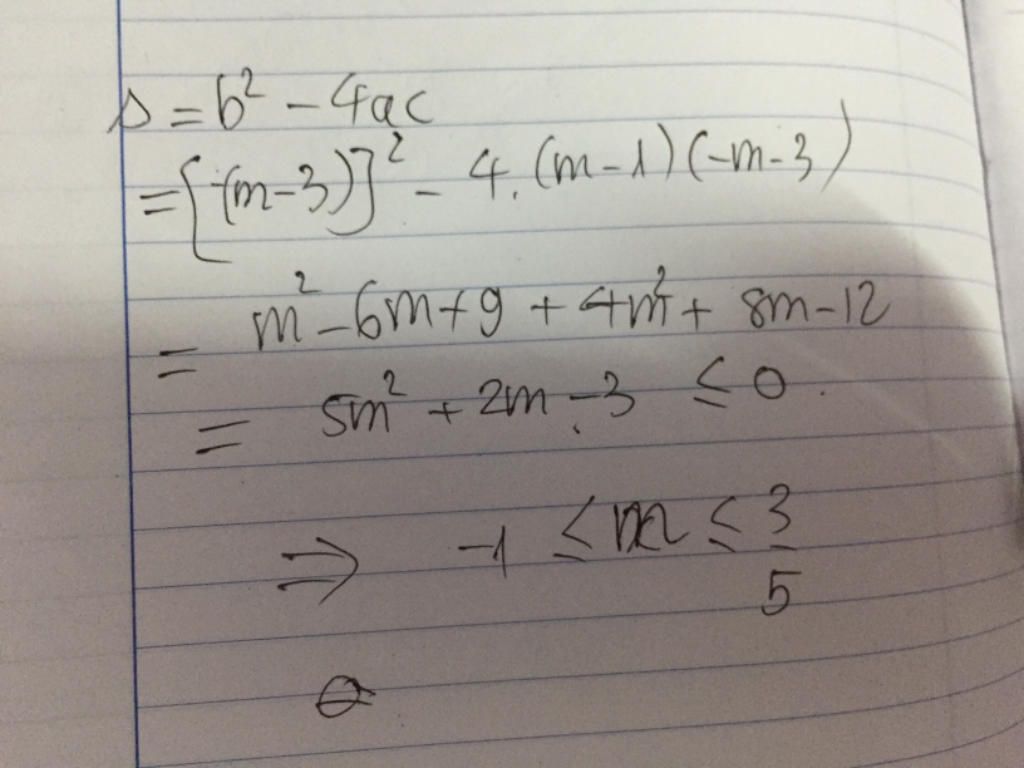 Δ = b² - 4ac
= [-(m-3)]² - 4.(m-1)(-m-3)
= m² - 6m + 9 + 4m² + 8m - 12
= 5m² + 2m - 3 ≤ 0.
⇒ -1 ≤ m ≤ 3/5